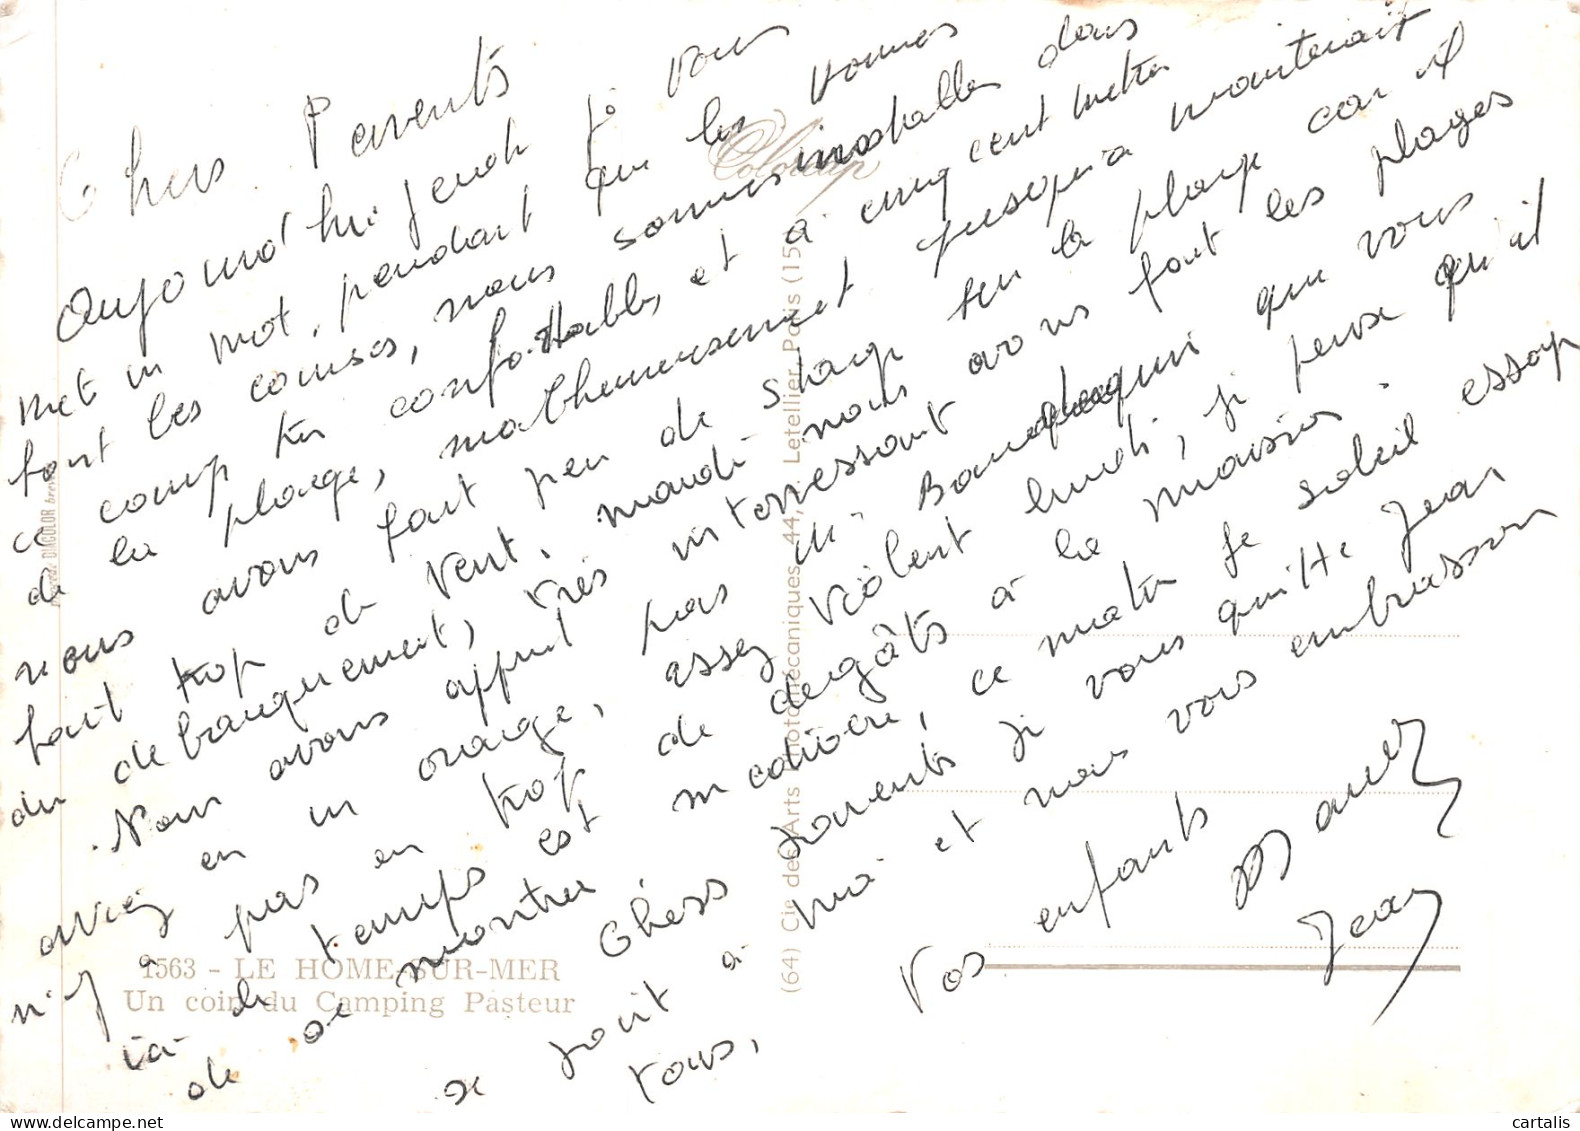 Chers Parents
Aujourd'hui jeudi je vous
met un mot, pendant que les bonnes
font les courses, nous sommes installés dans
ce camp très confortable, et à cinq cent mètres
de la plage, malheureusement jusqu'à maintenant
nous avons fait peu de sur la plage car il
fait trop de vent, mardi nous avons fait les plages
du debarquement, très interressant
Nous avons appris par Mr que vous
aviez eu un orage, assez violent lundi, je pense qu'il
n'y a pas eu trop de degâts à la maison.
ici le temps est ce matin le soleil essaye
de se montrer
Chers Parents je vous quitte Jean
se joint à moi et nous vous embrassons
tous,
Vos enfants
Jean
1563 - LE HOME-SUR-MER
Un coin du Camping Pasteur
(64) Cie des Arts Photomécaniques 44, Letellier Paris (15e)
DIACOLOR
Colorcap
cartalis